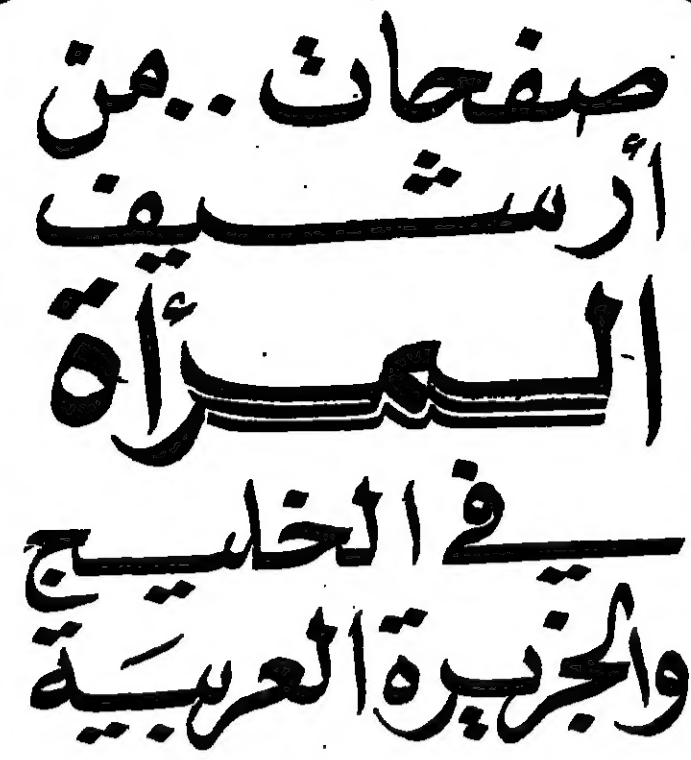 صفحات..من
أرشيف
المرأة
في الخليج
والجزيرة العربيَة